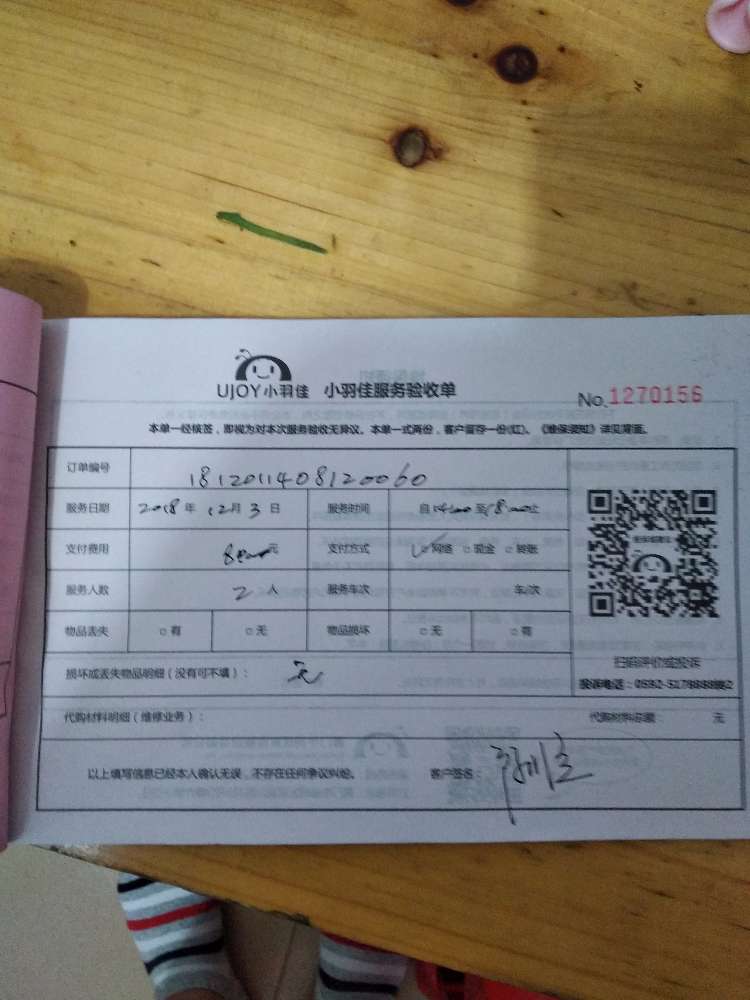 UJOY小羽佳 小羽佳服务验收单
No.1270156
本单一经核签，即视为对本次服务验收无异议。本单一式两份，客户留存一份(红)。《维保须知》详见背面。
订单编号 1812011408120060
服务日期 2018年12月3日 服务时间 自14:00至18:00止
支付费用 元 支付方式 ☑网络 □现金 □转账
服务人数 2人 服务车次 车/次
物品丢失 □有 □无 物品损坏 □无 □有
扫码评价或投诉
损坏或丢失物品明细（没有可不填）： 无
投诉电话：0592-5178888转2
代购材料明细（维修业务）： 代购材料总额： 元
以上填写信息已经本人确认无误，不存在任何争议纠纷。 客户签名：